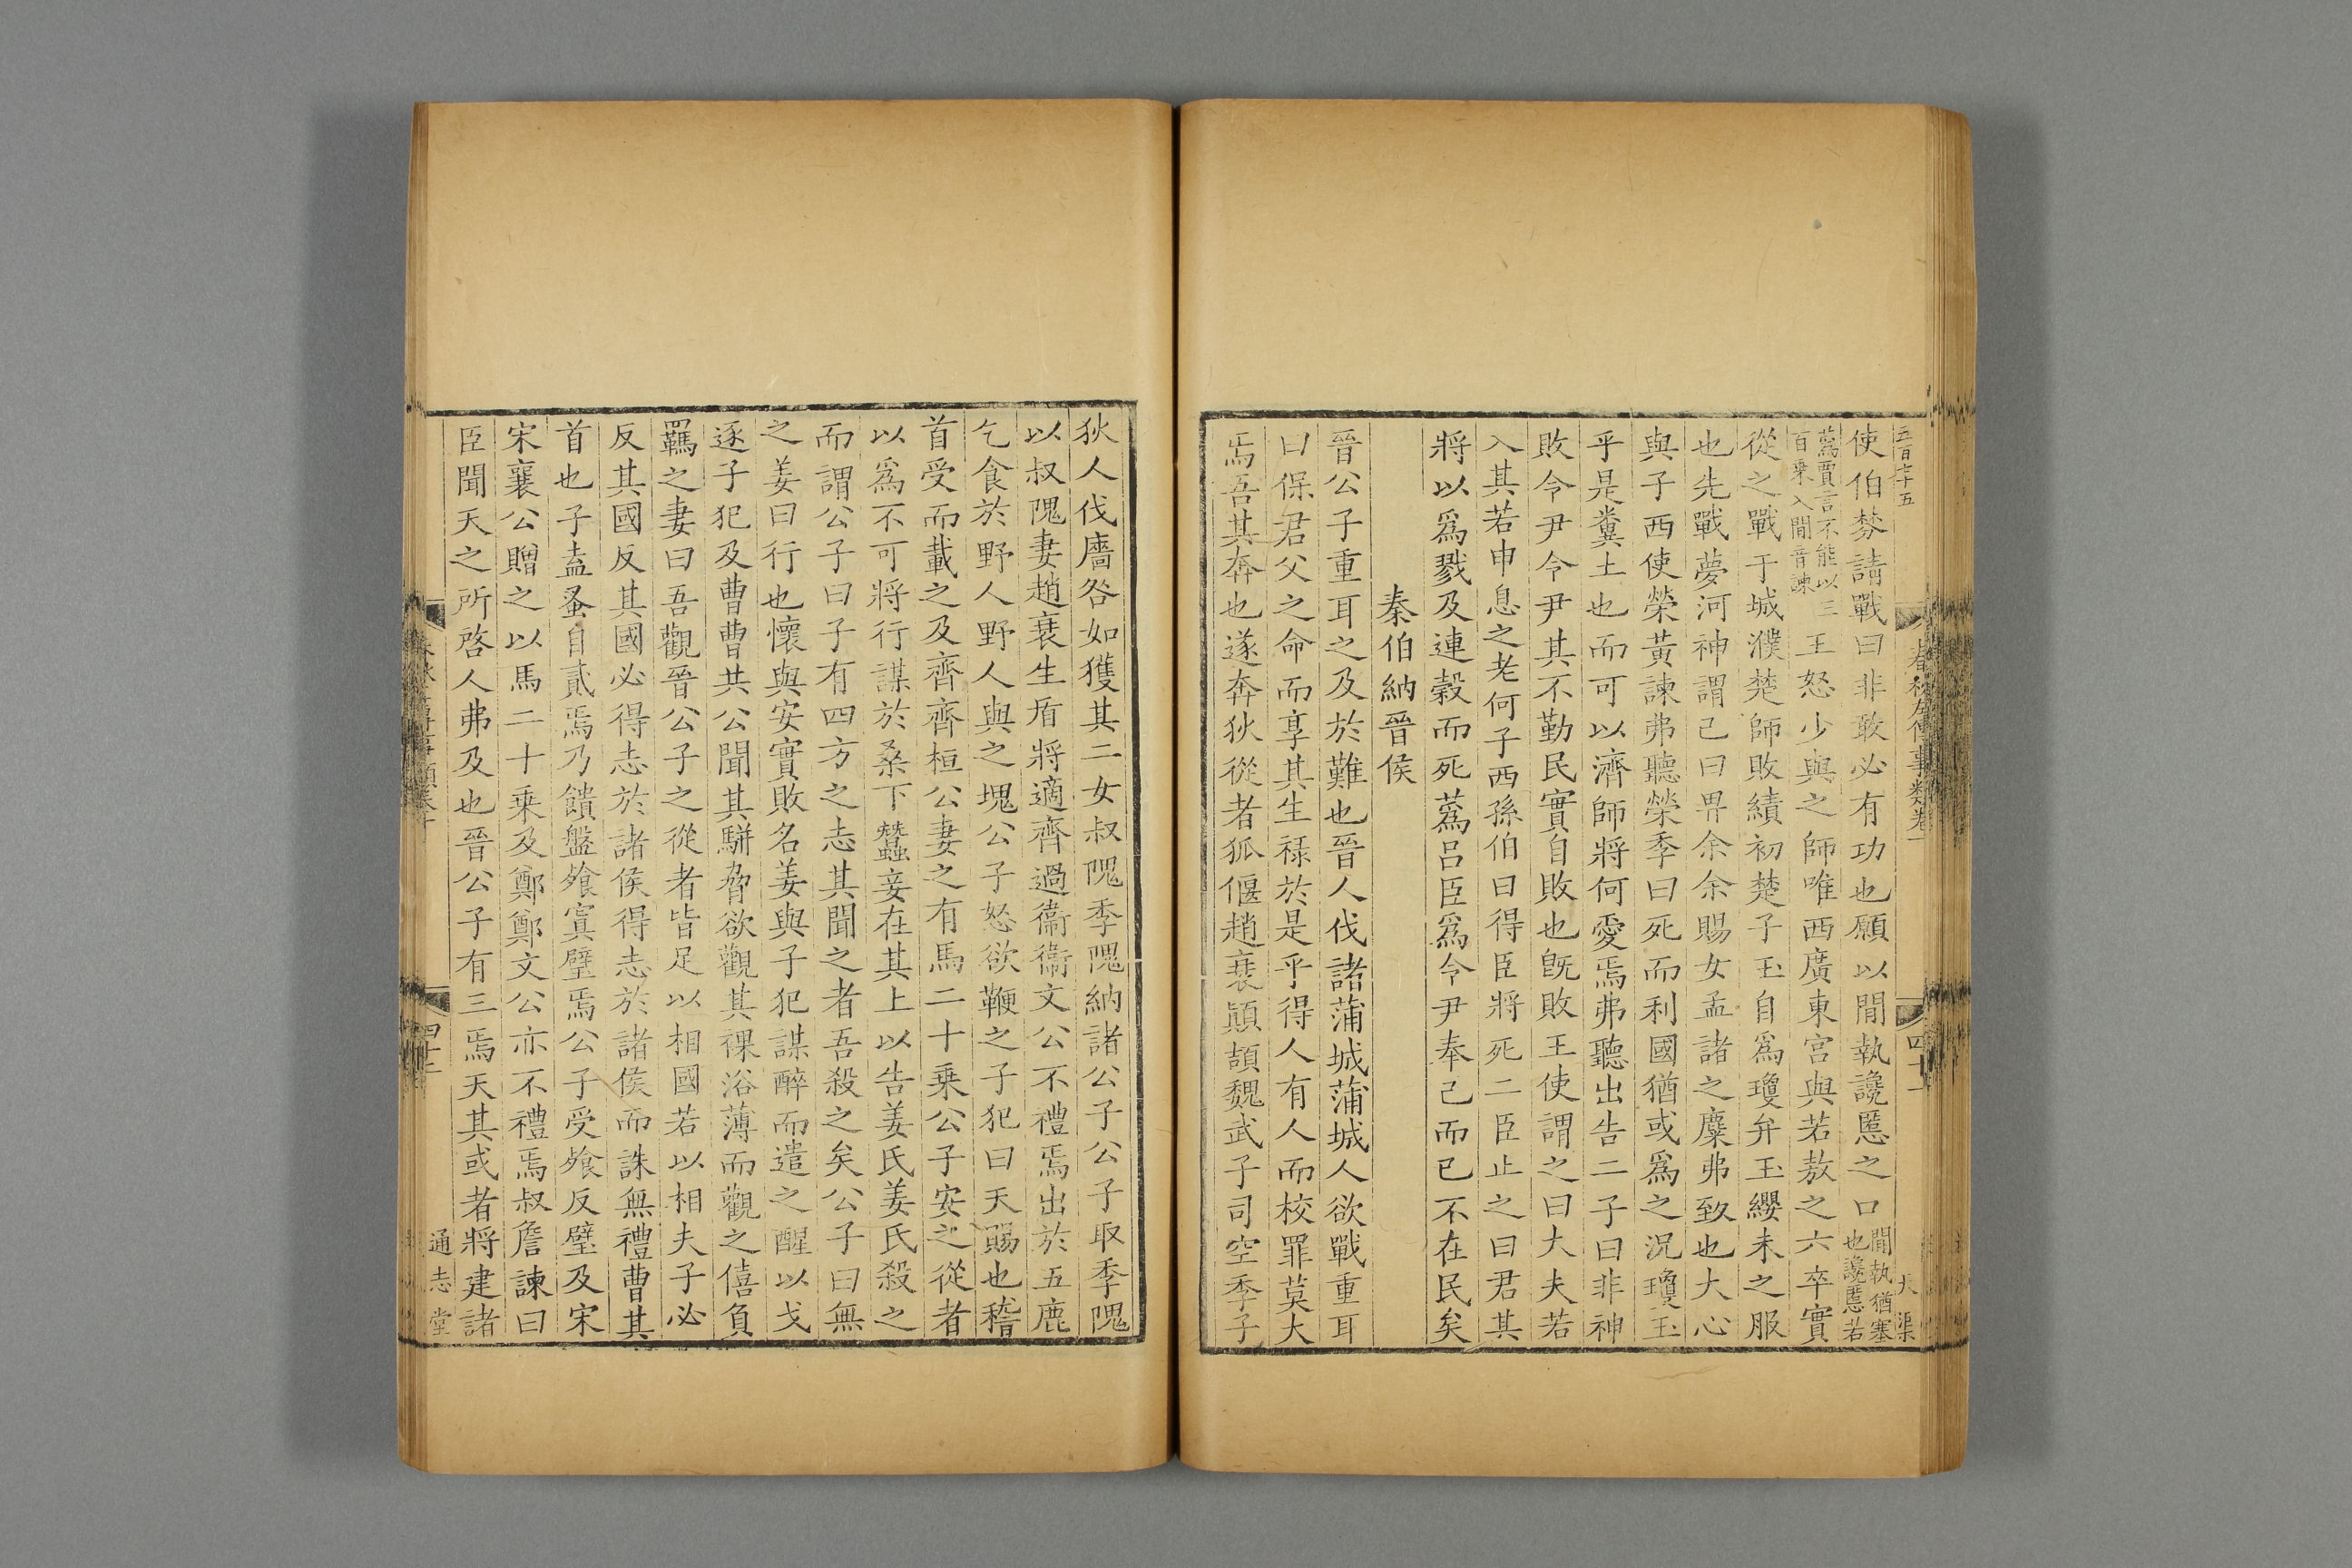 五百七十五
春秋左傳事類卷一
四十二
使伯棼請戰曰非敢必有功也願以間執讒慝之口間執猶塞也讒慝若
蒍賈言不能以三百乘入間音諫王怒少與之師唯西廣東宮與若敖之六卒實
從之戰于城濮楚師敗績初楚子玉自爲瓊弁玉纓未之服
也先戰夢河神謂己曰畀余余賜女孟諸之麋弗致也大心
與子西使榮黃諫弗聽榮季曰死而利國猶或爲之況瓊玉
乎是糞土也而可以濟師將何愛焉弗聽出告二子曰非神
敗令尹令尹其不勤民實自敗也旣敗王使謂之曰大夫若
入其若申息之老何子西孫伯曰得臣將死二臣止之曰君其
將以爲戮及連穀而死蒍呂臣爲令尹奉己而已不在民矣
秦伯納晉侯
晉公子重耳之及於難也晉人伐諸蒲城蒲城人欲戰重耳
曰保君父之命而享其生祿於是乎得人有人而校罪莫大
焉吾其奔也遂奔狄從者狐偃趙衰顚頡魏武子司空季子
狄人伐廧咎如獲其二女叔隗季隗納諸公子公子取季隗
以叔隗妻趙衰生盾將適齊過衞衞文公不禮焉出於五鹿
乞食於野人野人與之塊公子怒欲鞭之子犯曰天賜也稽
首受而載之及齊齊桓公妻之有馬二十乘公子安之從者
以爲不可將行謀於桑下蠶妾在其上以告姜氏姜氏殺之
而謂公子曰子有四方之志其聞之者吾殺之矣公子曰無
之姜曰行也懷與安實敗名姜與子犯謀醉而遣之醒以戈
逐子犯及曹曹共公聞其駢脅欲觀其裸浴薄而觀之僖負
羈之妻曰吾觀晉公子之從者皆足以相國若以相夫子必
反其國反其國必得志於諸侯得志於諸侯而誅無禮曹其
首也子盍蚤自貳焉乃饋盤飱寘璧焉公子受飱反璧及宋
宋襄公贈之以馬二十乘及鄭鄭文公亦不禮焉叔詹諫曰
臣聞天之所啓人弗及也晉公子有三焉天其或者將建諸
通志堂